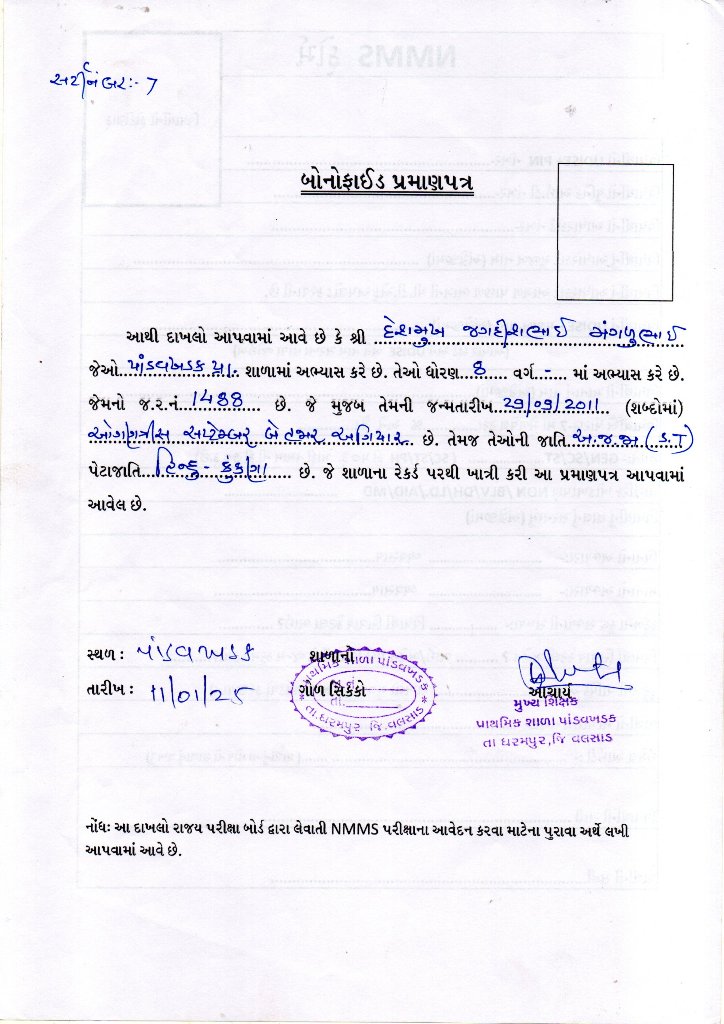 સર્ટીનંબર:- 7
બોનોફાઈડ પ્રમાણપત્ર
આથી દાખલો આપવામાં આવે છે કે શ્રી દેશમુખ જગદીશભાઈ મંગળુભાઈ
જેઓ પાંડવખડક પ્રા. શાળામાં અભ્યાસ કરે છે. તેઓ ધોરણ 8 વર્ગ - માં અભ્યાસ કરે છે.
જેમનો જ.ર.નં. 1488 છે. જે મુજબ તેમની જન્મતારીખ 29/09/2011 (શબ્દોમાં)
ઓગણત્રીસ સપ્ટેમ્બર બે હજાર અગિયાર છે. તેમજ તેઓની જાતિ અ.જ.જા
પેટાજાતિ હિન્દુ - કુકણા છે. જે શાળાના રેકર્ડ પરથી ખાત્રી કરી આ પ્રમાણપત્ર આપવામાં
આવેલ છે.
સ્થળ : પાંડવખડક
તારીખ : 11/01/25
શાળાનો
ગોળ સિક્કો
પ્રાથમિક શાળા પાંડવખડક
તા.ધરમપુર જિ.વલસાડ
આચાર્ય
મુખ્ય શિક્ષક
પ્રાથમિક શાળા પાંડવખડક
તા ધરમપુર,જિ વલસાડ
નોંધઃ આ દાખલો રાજય પરીક્ષા બોર્ડ દ્વારા લેવાતી NMMS પરીક્ષાના આવેદન કરવા માટેના પુરાવા અર્થે લખી
આપવામાં આવે છે.